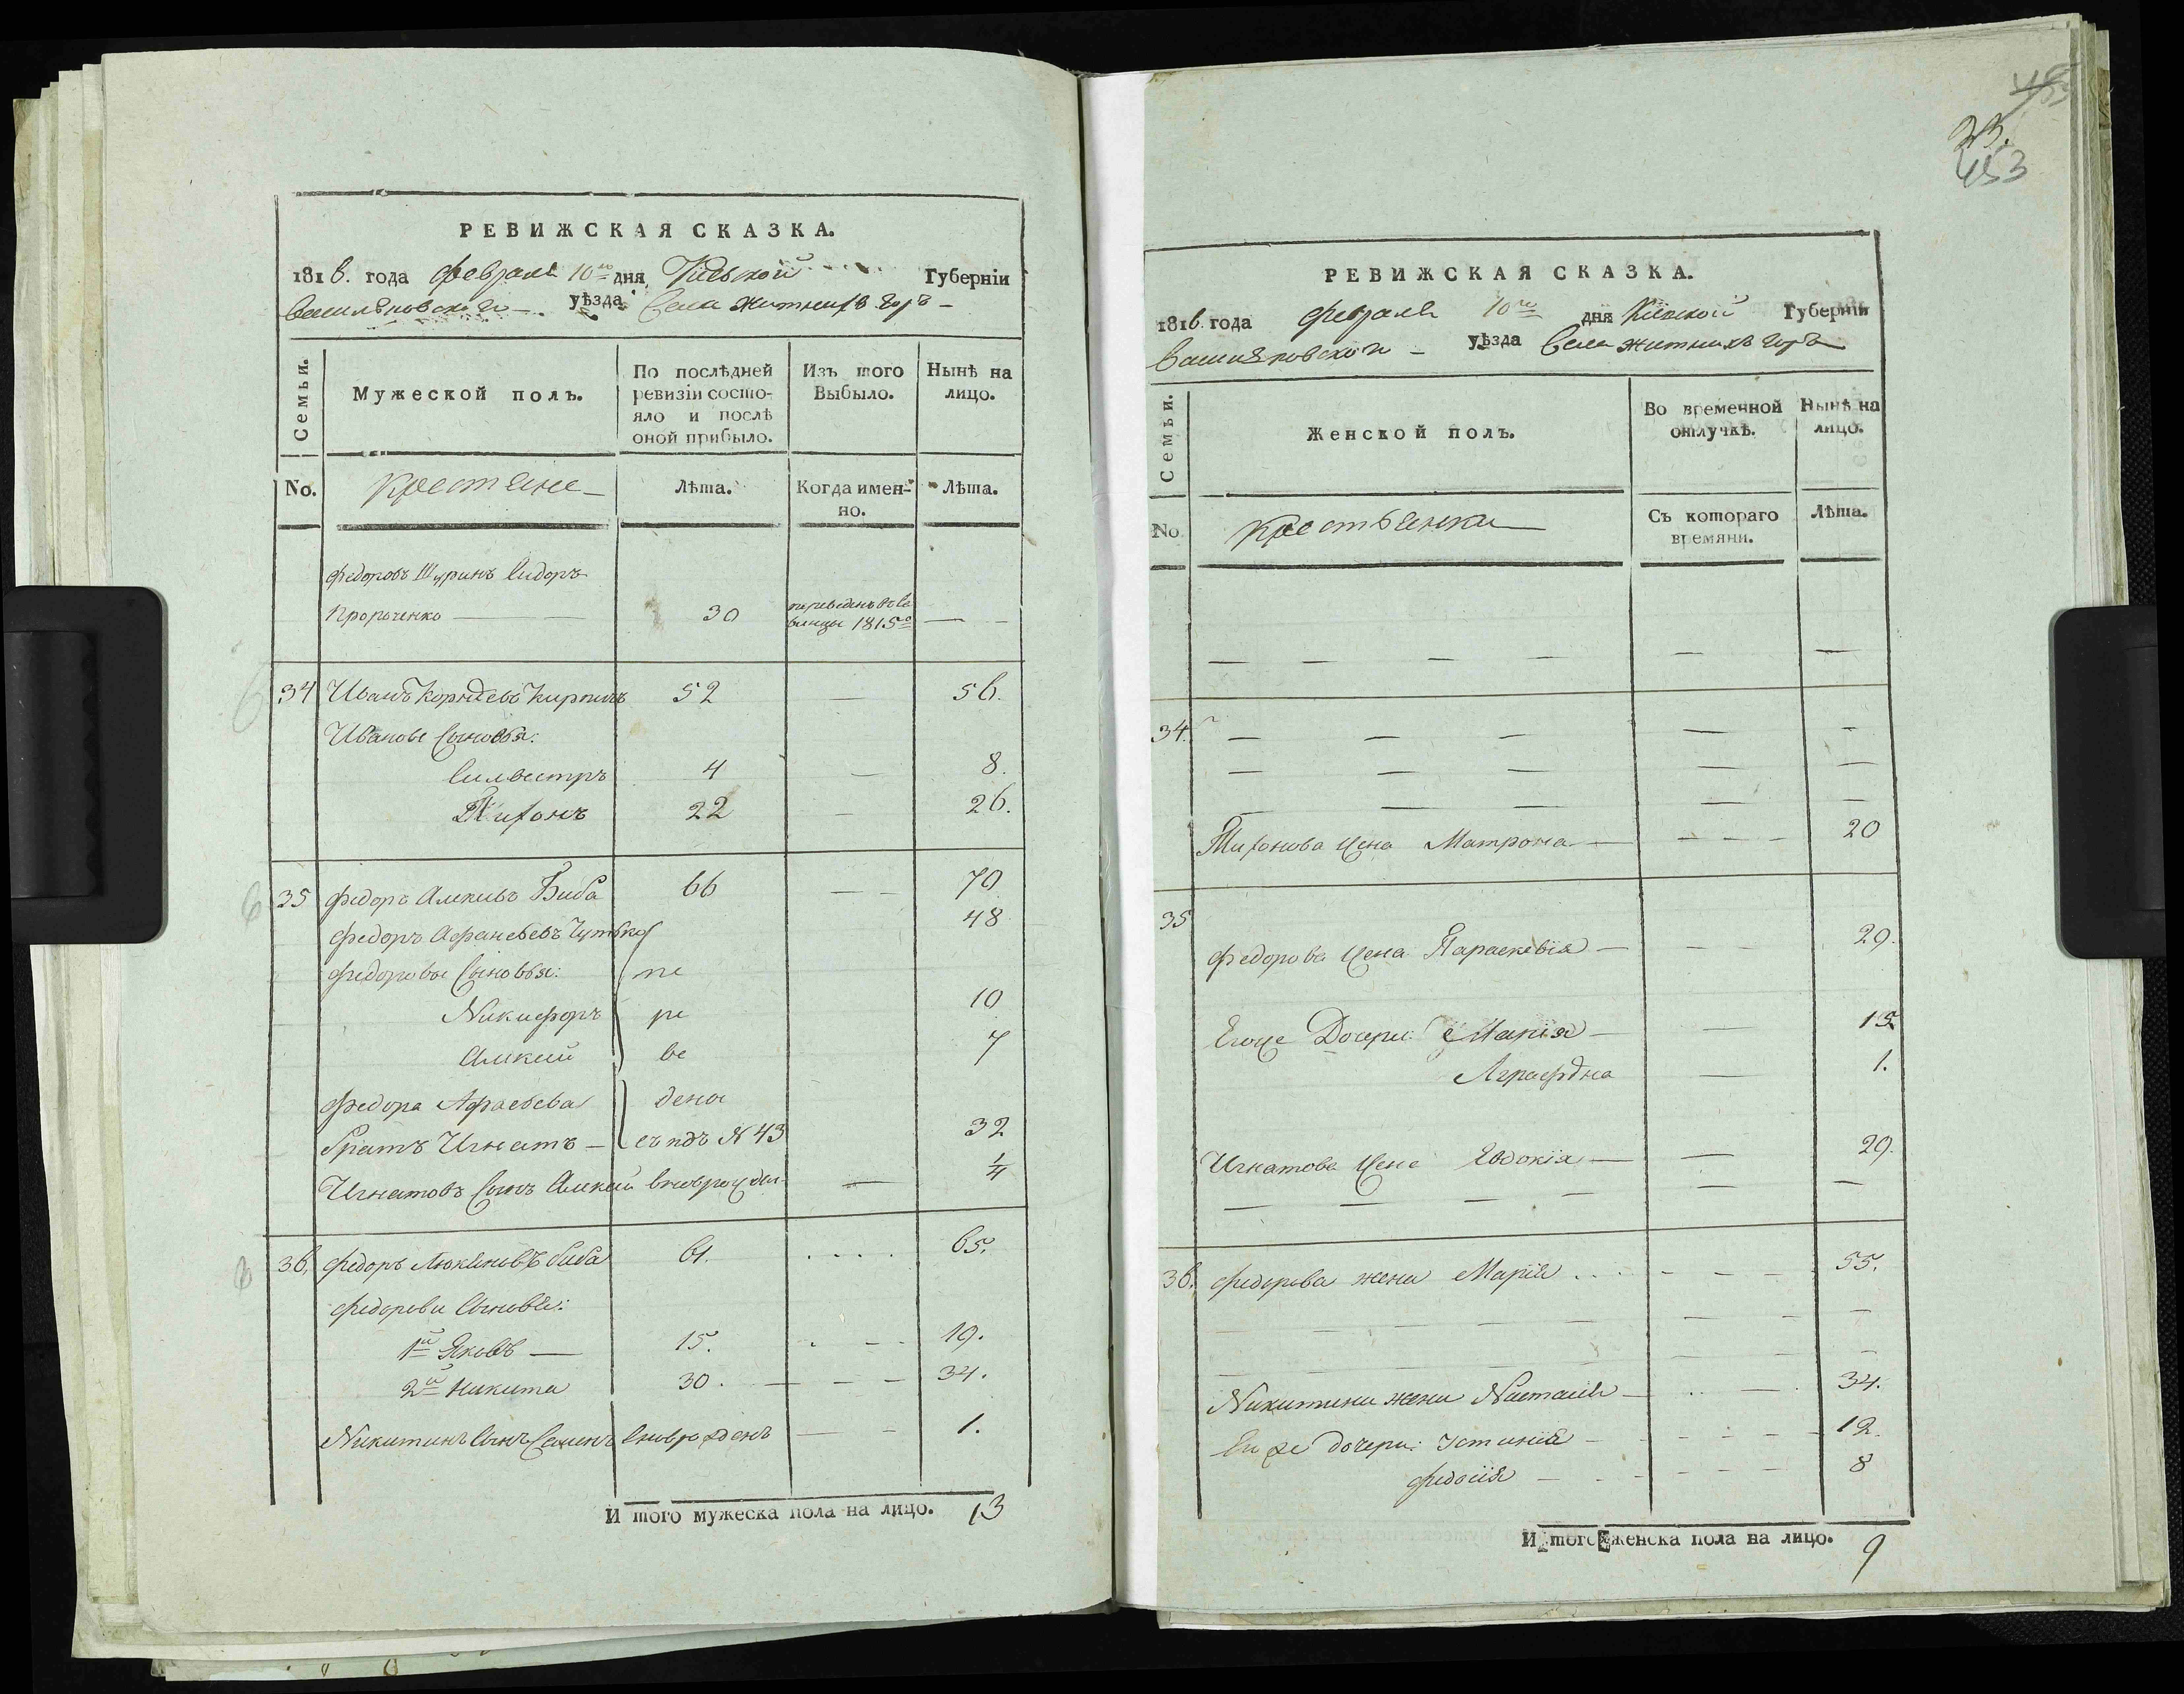 РЕВИЖСКАЯ СКАЗКА.
1816. года февраля 10го дня, Кіевской Губерніи
Василковского уѣзда Села Житнихъ горъ
Семьи.
Мужеской полъ.
По послѣдней
ревизіи состо-
яло и послѣ
оной прибыло.
Изъ того
Выбыло.
Нынѣ на
лицо.
No.
Крестяне
Лѣта.
Когда имен-
но.
Лѣта.
Федоровъ Шуринъ Сидоръ
30 переведенъ въ
1815го
34 Иванъ Корнѣевъ 52 — 56.
Ивановы Сыновья:
Силвестръ 4 — 8.
Тихонъ 22 — 26.
35 Федоръ Алкивъ Биба 66 — — 70
Федоръ Афанасьевъ 48
Федоровы Сыновья: пе
Никифоръ ре 10
Алкий ве 7
Федора Афаевева дены
братъ Игнатъ — съ подъ N 43 32
Игнатовъ Сынъ Алкий вновь рожден — 1/4
36. Федоръ Люкяновъ биба 61. 65.
Федорови Сыновя:
1й Яковъ — 15. 19.
2й Никита 30. — 34.
Никитинъ Сынъ Семенъ вновь рожденъ — 1.
И того мужеска пола на лицо. 13
23.
453
РЕВИЖСКАЯ СКАЗКА.
1816 года февраля 10го дня Кіевской Губерніи
Василковского уѣзда Села Житнихъ горъ
Семьи.
Женской полъ.
Во временной
отлучкѣ.
Нынѣ на
лицо.
No.
Крестьянки
Съ котораго
времяни.
Лѣта.
34.
Тихонова жена Матрона — 20
35
Федорова жена Параскевія — 29.
Егоже Дочери: Марія — 15
Аграфена — 1.
Игнатова жена Евдокія — 29.
36. Федорова жена Марія 55.
Никитина жена Настасія — 34.
Ея же дочери: Устинія — 12.
Федосія — 8
И того женска пола на лицо. 9